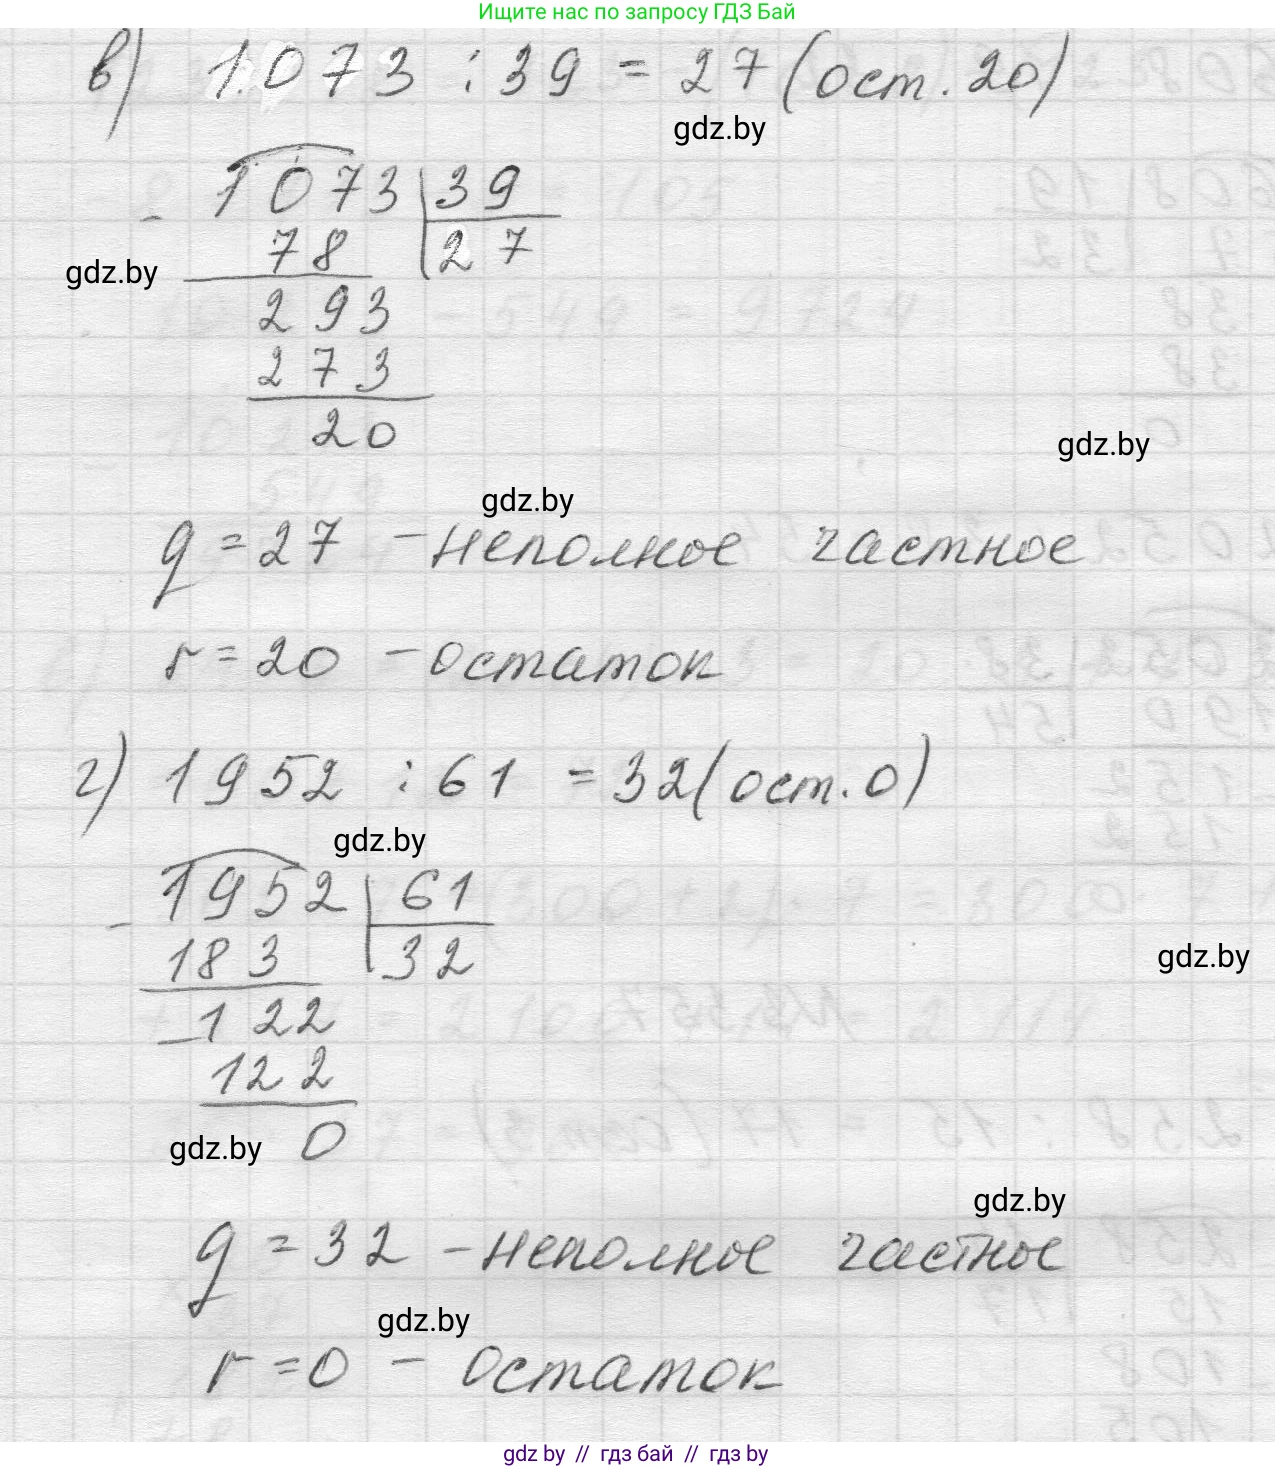 Ищите нас по запросу ГДЗ Бай
в) 1073 : 39 = 27 (ост. 20)
gdz.by
- 1073 | 39
78 | 27
gdz.by
293
273
20
gdz.by
gdz.by
q = 27 - неполное частное
r = 20 - остаток
г) 1952 : 61 = 32 (ост. 0)
gdz.by
- 1952 | 61
183 | 32
gdz.by
- 122
122
0
gdz.by
gdz.by
q = 32 - неполное частное
gdz.by
r = 0 - остаток
gdz by // гдз бай // гдз by